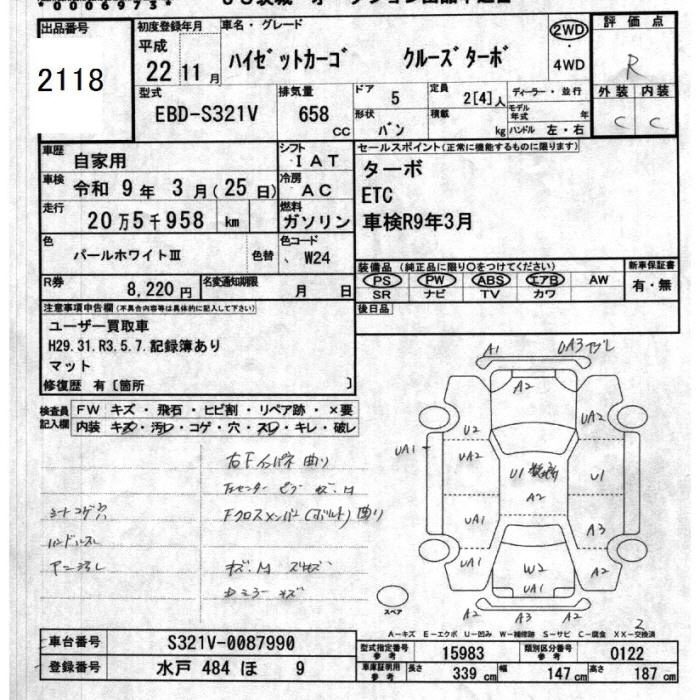 *0006973*
出品番号
2118
初度登録年月
平成
22年11月
車名・グレード
ハイゼットカーゴ クルーズターボ
2WD
・
4WD
評価点
R
外装 内装
C C
型式
EBD-S321V
排気量
658 CC
ドア 5
形状 バン
定員 2[4]人
積載 kg
ディーラー・並行
モデル年式 年
ハンドル 左・右
車歴 自家用
シフト IAT
車検 令和 9年 3月(25日)
冷房 AC
走行 20万5千958 km
燃料 ガソリン
色 パールホワイトⅢ 色替
色コード W24
R券 8,220円
名変通知期限 月 日
セールスポイント(正常に機能するものに限ります)
ターボ
ETC
車検R9年3月
装備品 (純正品に限り〇をつけてください)
PS PW ABS エアB AW
SR ナビ TV カワ
新車保証書
有・無
後日品
注意事項申告欄(不具合内容等は具体的に記入して下さい)
ユーザー買取車
H29.31.R3,5.7.記録簿あり
マット
修復歴 有[箇所 ]
検査員記入欄
FW キズ・飛石・ヒビ割・リペア跡・×要
内装 キズ・汚レ・コゲ・穴・スレ・キレ・破レ
右Fインパネ曲り
Fクロスメンバー(ボルト)曲り
シートコゲ穴
ハンドルスレ
A1
UA3
A2
U2
UA2
UA1
UA2
U1
A2
U1
UA1
A3
UA1
W2
A2
UA1
A2 A3 A2
スペア
A-キズ E-エクボ U-凹み W-補修跡 S-サビ C-腐食 XX-交換済
車台番号 S321V-0087990
登録番号 水戸 484 ほ 9
型式指定番号 参考 15983
類別区分番号 参考 0122
車庫証明用 参考
長さ 339 cm
幅 147 cm
高さ 187 cm